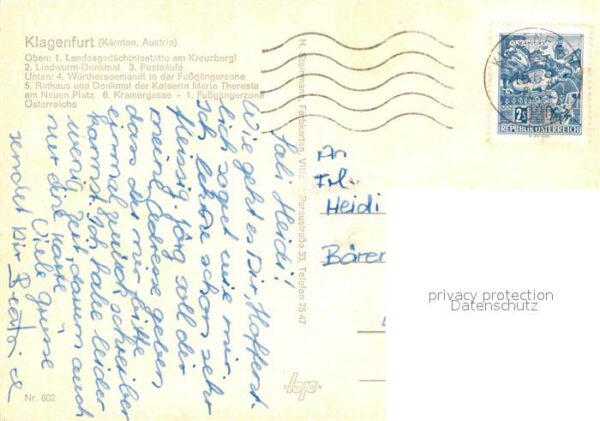 Klagenfurt (Kärnten, Austria)
Oben: 1. Landesgedächtnisstätte am Kreuzbergl
2. Lindwurm-Denkmal 3. Pestsäule
Unten: 4. Wörtherseemandl in der Fußgängerzone
5. Rathaus und Denkmal der Kaiserin Maria Theresia
am Neuen Platz 6. Kramergasse - 1. Fußgängerzone
Österreichs
H. Steinmann, Farbkarten, Peraustraße 33, Telefon 75 47
Heidi!
Wie geht es Dir, Hoffent-
lich so gut wie mir.
Ich lerne schon sehr
fleissig. Jörg soll dir
meine Adresse geben
dass du mir bitte
einmal zurück schreiben
kannst. Ich habe leider
wenig Zeit, darum auch
nur eine Karte
Viele grüsse
sendet Dir Beatrice
An
Frl.
Heidi
Bären
2S
REPUBLIK ÖSTERREICH
privacy protection
Datenschutz
Nr. 602